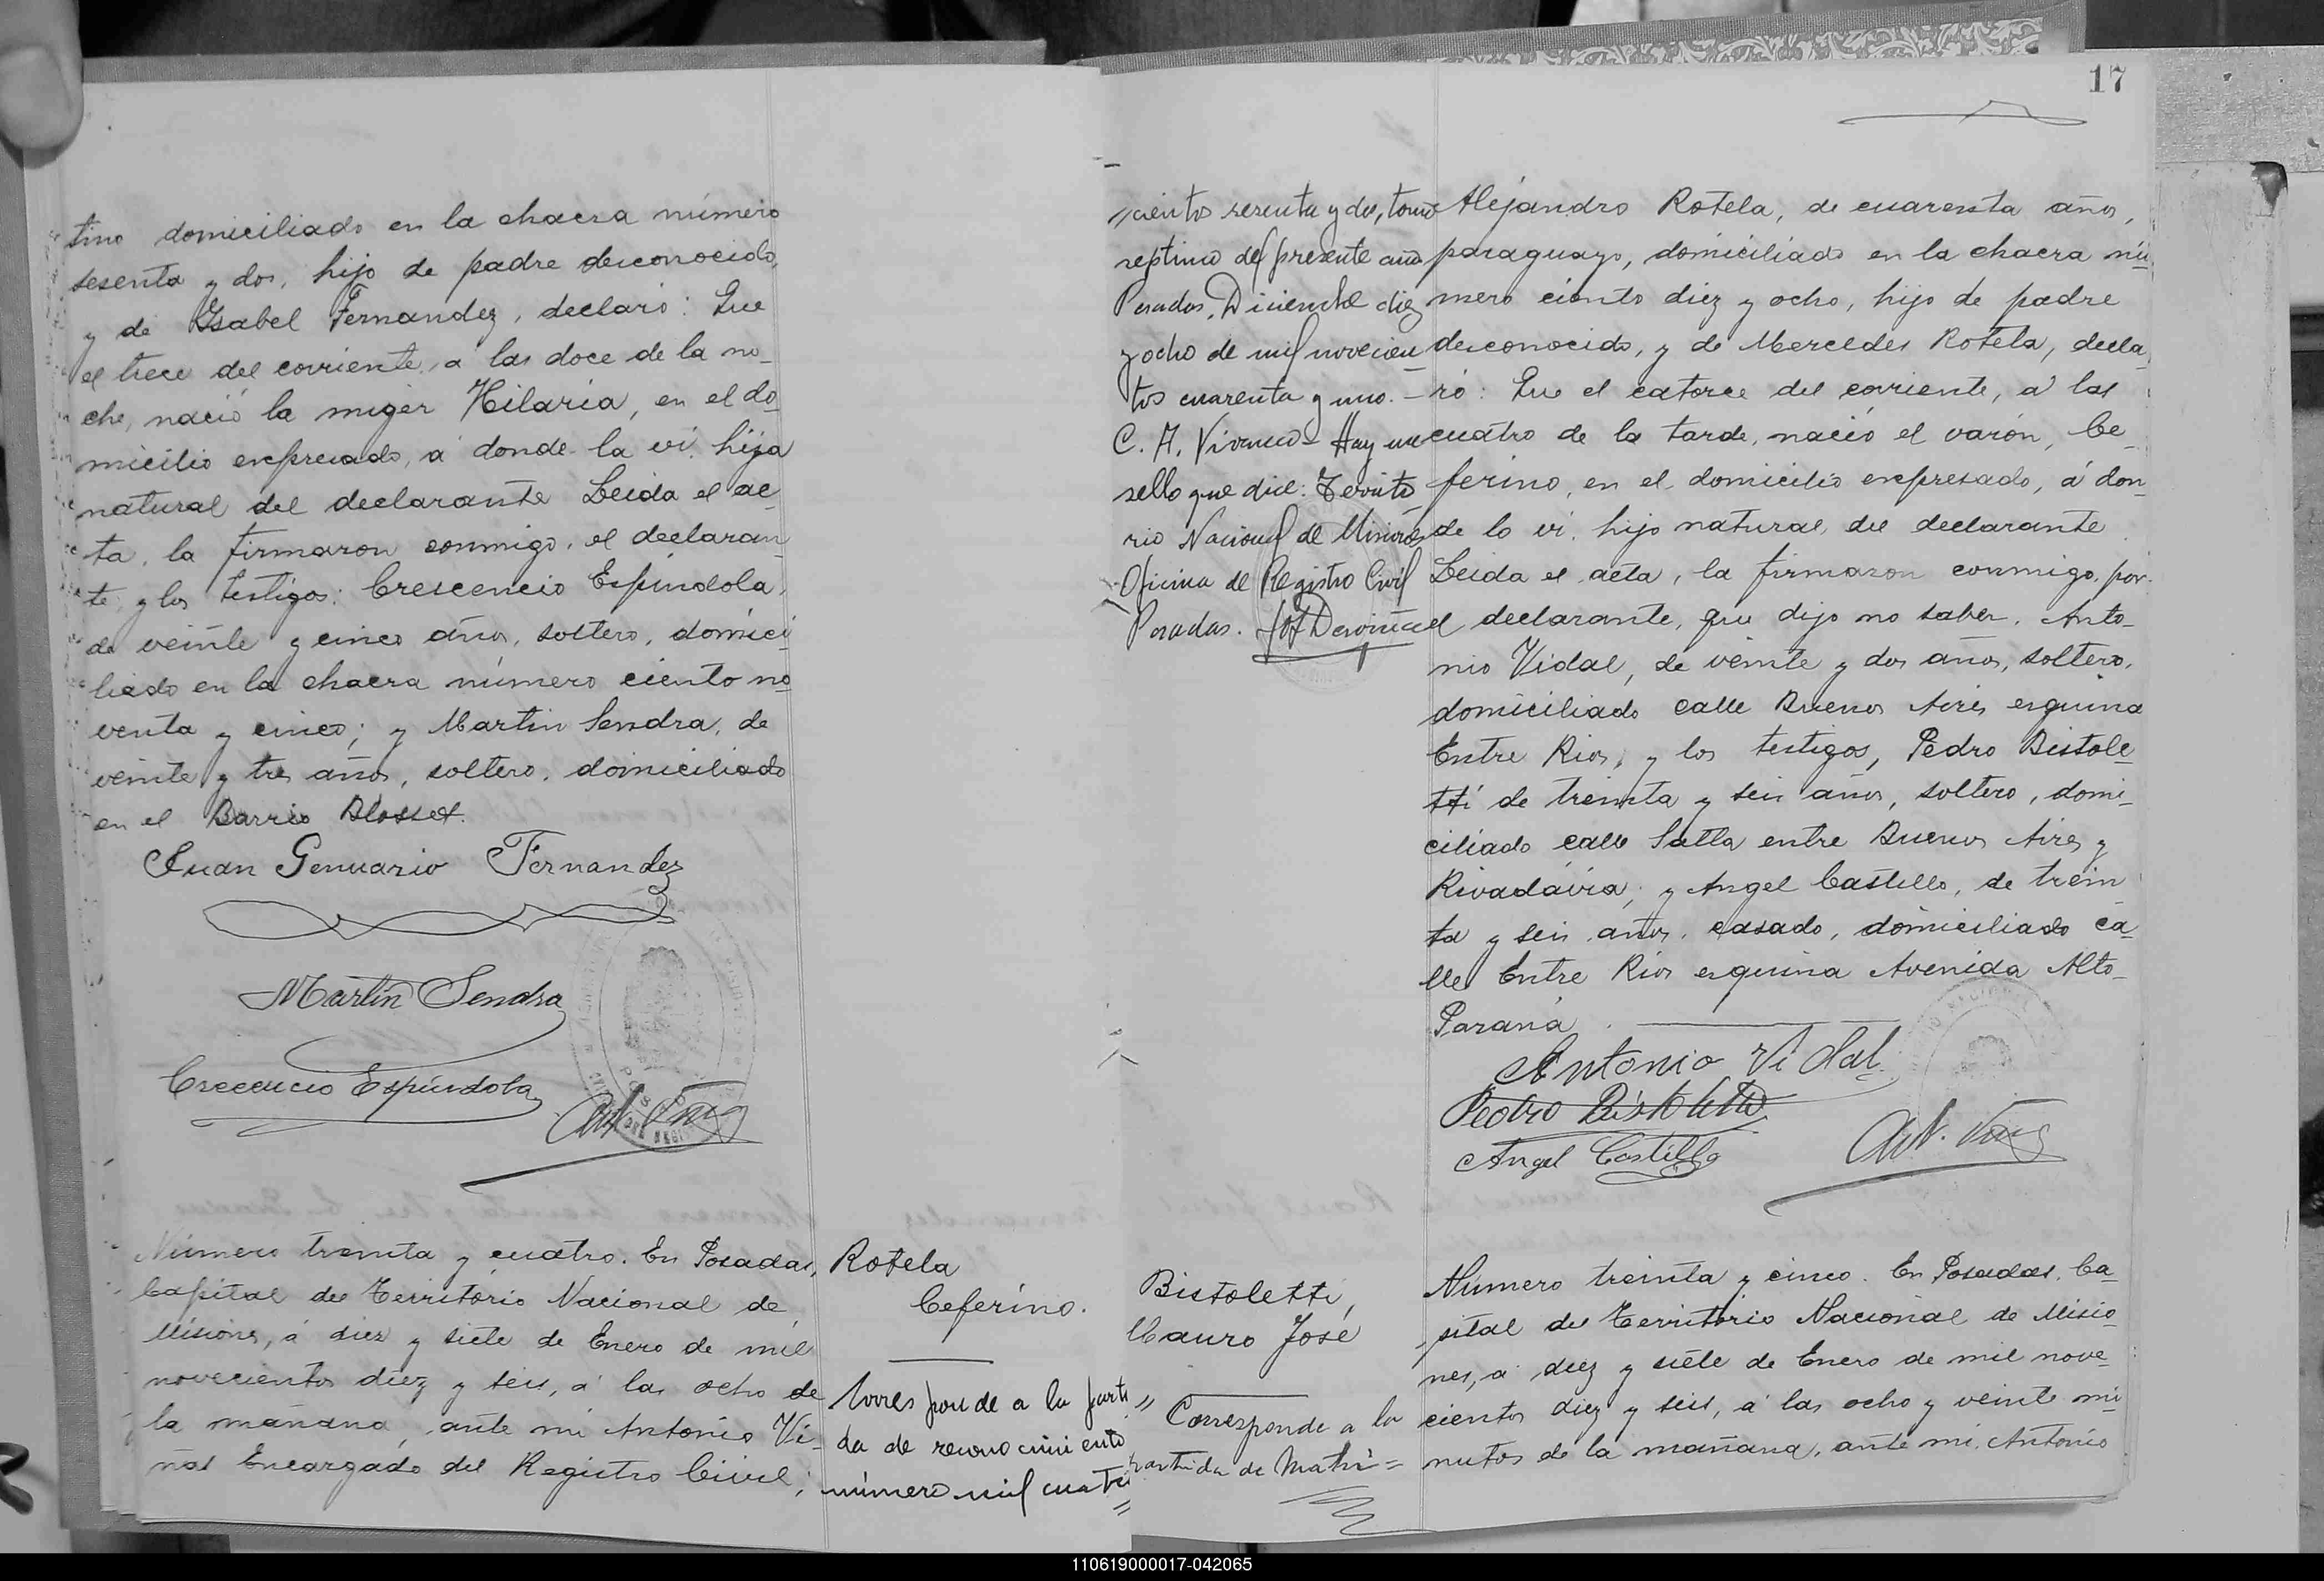 tino domiciliado en la chacra número
sesenta y dos, hijo de padre desconocido,
y de Ysabel Fernandez, declaró: Que
el trece del corriente, á las doce de la no_
che, nació la mujer Hilaria, en el do_
micilio expresado, á donde la ví, hija
natural del declarante Leida el ac_
ta, la firmaron conmigo, el declaran_
te, y los testigos: Crescencio Espindola,
de veinte y cinco años, soltero, domici_
liado en la chacra número ciento no_
venta y cinco; y Martin Sendra, de
veinte y tres años, soltero, domiciliado
en el Barrio Blosset.
Juan Genuario Fernandez
Martín Sendra
Crecencio Espíndola
Número treinta y cuatro. En Posadas,
Capital del Territorio Nacional de
Misiones, á diez y siete de Enero de mil
novecientos diez y seis, á las ocho de
la mañana, ante mi Antonio Vi_
ñas Encargado del Registro Civil;
Rotela
Ceferino.
Corresponde a la parti
da de reconocimiento
número mil cuatro
17
"cientos sesenta y dos, tomo
septimo del presente año
Posadas, Diciembre diez
y ocho de mil novecien_
tos cuarenta y uno. –
C. A. Vivanco – Hay un
sello que dice: Territo
rio Nacional de Misiones
Oficina de Registro Civil
Posadas.
Alejandro Rotela, de cuarenta años,
paraguayo, domiciliado en la chacra nú_
mero ciento diez y ocho, hijo de padre
desconocido, y de Mercedes Rotela, decla_
ró: Que el catorce del corriente, á las
cuatro de la tarde, nació el varón, Ce_
ferino, en el domicilio expresado, á don_
de lo ví, hijo natural del declarante.
Leida el acta, la firmaron conmigo, por
el declarante, que dijo no saber, Anto_
nio Vidal, de veinte y dos años, soltero,
domiciliado calle Buenos Aires esquina
Entre Rios, y los testigos, Pedro Bistole_
tti de treinta y seis años, soltero, domi_
ciliado calle Salta entre Buenos Aires y
Rivadavia; y Angel Castillo, de trein
ta y seis años, casado, domiciliado ca_
lle Entre Rios esquina Avenida Alto_
Paraná.
Antonio Vidal
Pedro Bistoletti
Angel Castillo
Bistoletti,
Mauro José
Corresponde a la
partida de Matri=
Número treinta y cinco. En Posadas, Ca_
pital del Territorio Nacional de Misio_
nes, á diez y siete de Enero de mil nove_
cientos diez y seis, á las ocho y veinte mi_
nutos de la mañana, ante mi, Antonio
110619000017-042065